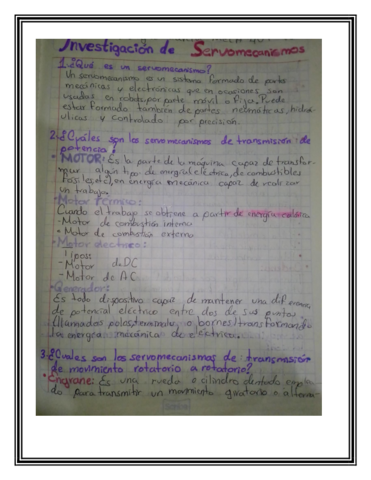 Investigación de Servomecanismos
1.¿Qué es un servomecanismo?
Un servomecanismo es un sistema formado de parte
mecánicas y electrónicas que en ocasiones son
usadas en robots, parte movil o fijo. Puede
estar formado tambien de partes neumáticas, hidrau
ulicas y controlado por precisión.
2.¿Cuáles son los servomecanismos de transmisión de
potencia?
• MOTOR: Es la parte de la máquina capaz de transfor-
mar algún tipo de energía (electrica, de combustibles
fosiles, etc), en energía mecánica capaz de realizar
un trabajo.
• Motor termico:
Cuando el trabajo se obtiene a partir de energía
- Motor de combustión interno
• Motor de combustión externo
• Motor eléctrico:
Tipos:
- Motor de DC
- Motor de AC
• Generador:
Es todo dispositivo capaz de mantener una diferencia
de potencial eléctrico entre dos de sus puntos.
(llamados polos, terminales o bornes) transformando
la energía mecánica de electrica.
3.¿Cuales son los servomecanismos de transmisión
de movimiento rotatorio a rotatorio?
• Engrane: Es una rueda o cilindro dentado emplea
do para transmitir un movimiento giratorio o alterna-